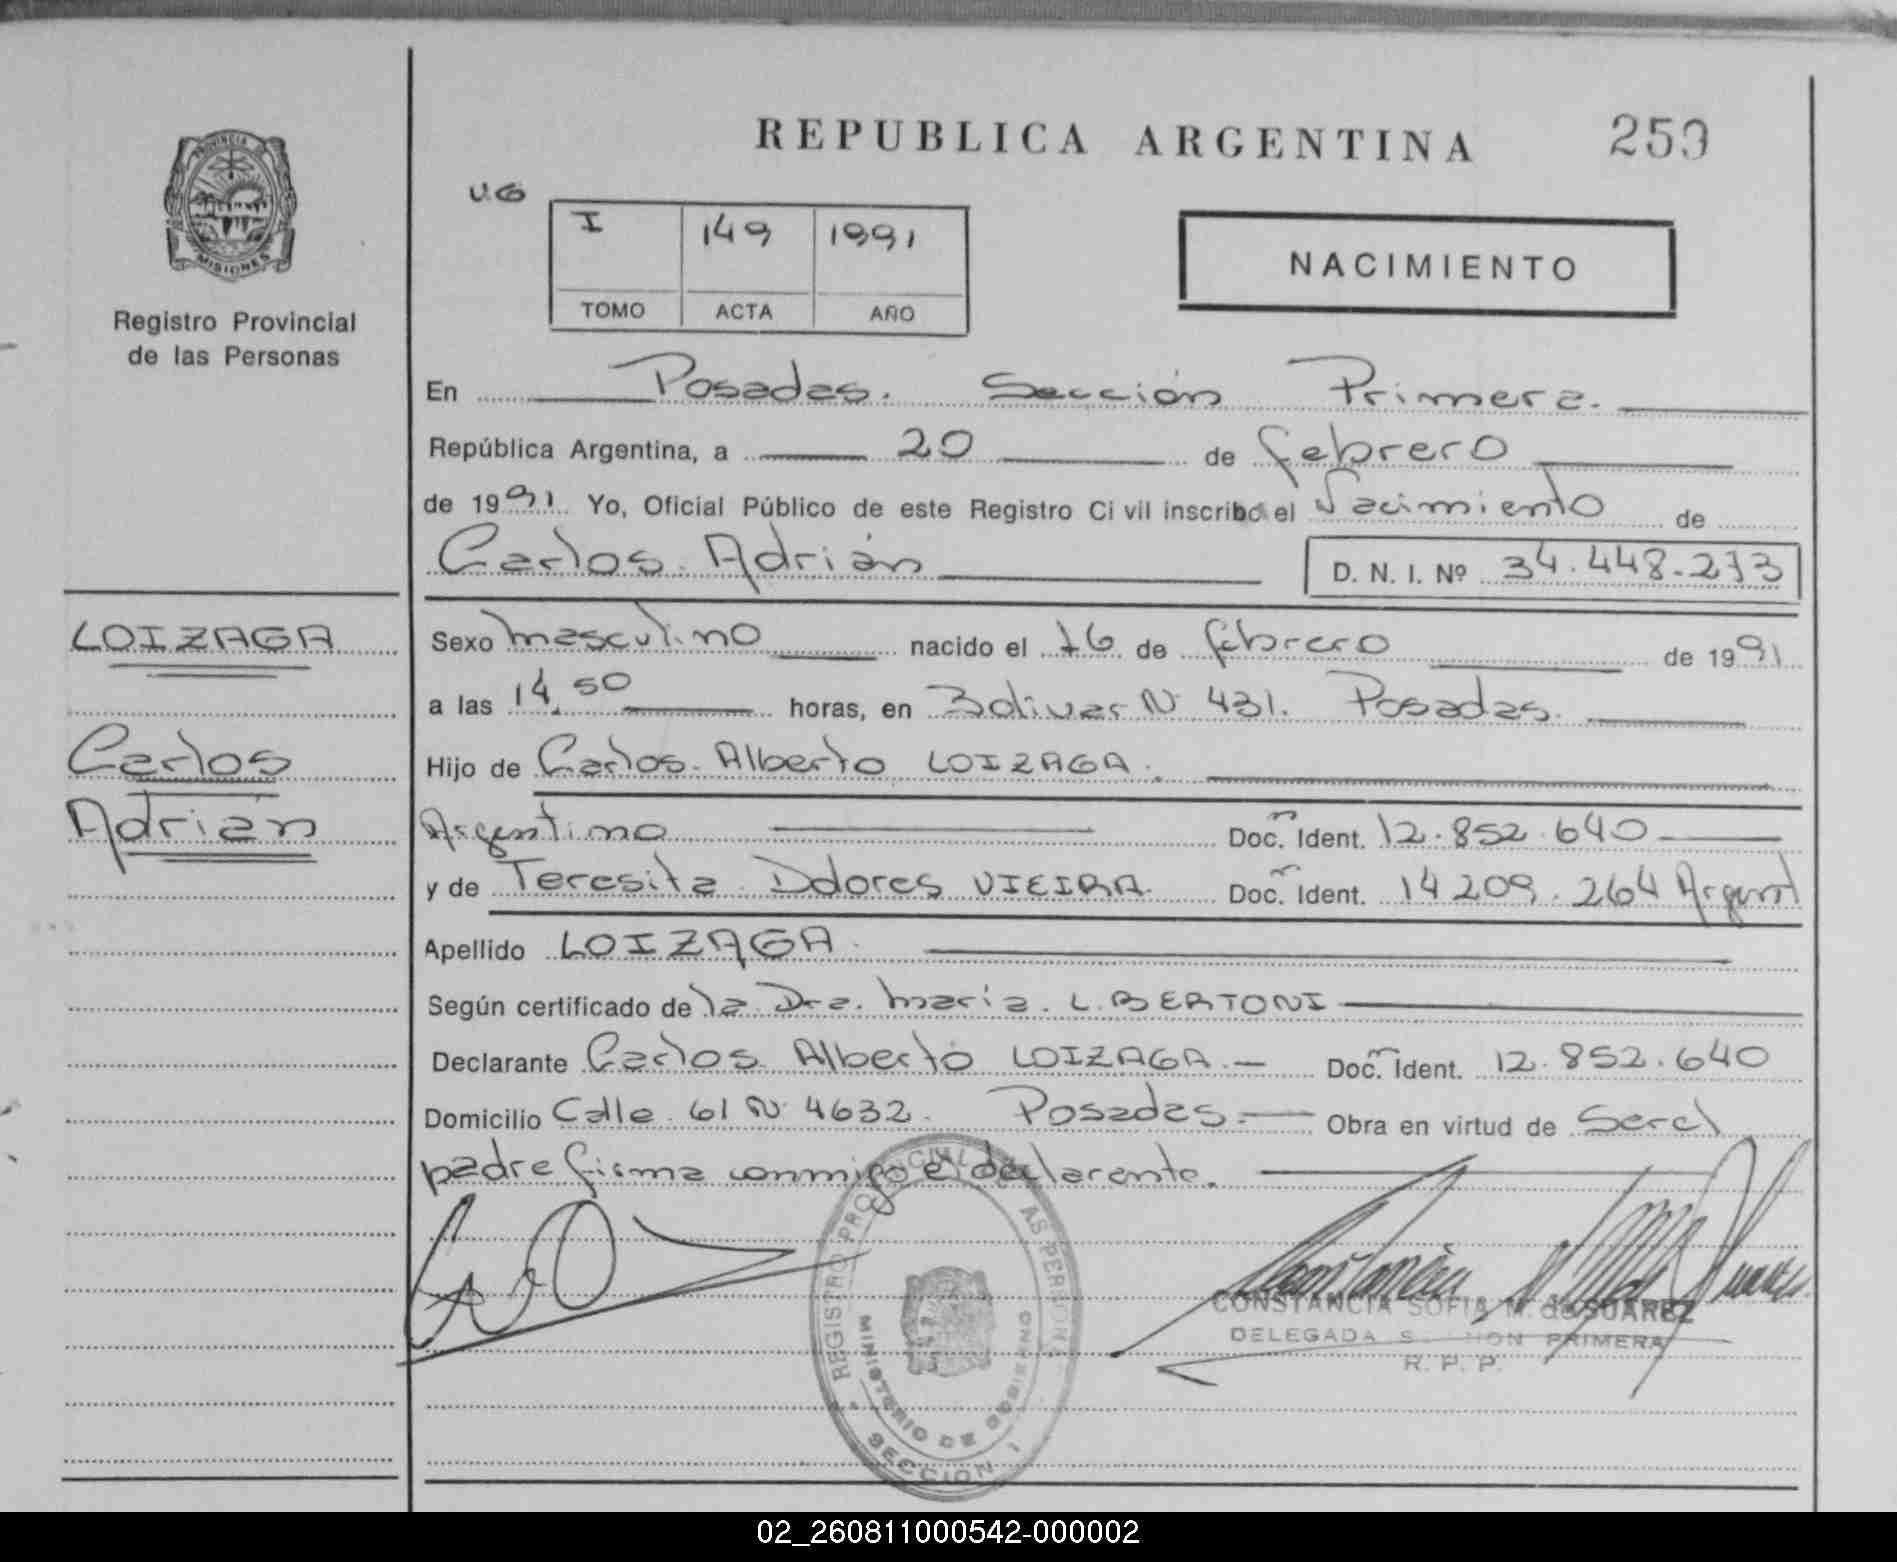 REPUBLICA ARGENTINA
259
PROVINCIA
MISIONES
Registro Provincial
de las Personas
U.G
I 149 1991
TOMO ACTA AÑO
NACIMIENTO
En Posadas. Sección Primera.
República Argentina, a 20 de febrero
de 1991 Yo, Oficial Público de este Registro Civil inscribo el Nacimiento de
Carlos Adrián
D. N. I. Nº 34.448.273
LOIZAGA
Carlos
Adrián
Sexo masculino nacido el 16 de febrero de 1991
a las 14,50 horas, en Bolivar Nº 431. Posadas.
Hijo de Carlos Alberto LOIZAGA.
Argentino Doc. Ident. 12.852.640
y de Teresita Dolores VIEIRA Doc. Ident. 14 209.264 Argent
Apellido LOIZAGA.
Según certificado de la Dra. Maria L. BERTONI
Declarante Carlos Alberto LOIZAGA.- Doc. Ident. 12.852.640
Domicilio Calle 61 Nº 4632. Posadas.- Obra en virtud de ser el
padre firma conmigo el declarante.
REGISTRO PROVINCIAL DE LAS PERSONAS
MINISTERIO DE GOBIERNO
SECCION 1
CONSTANCIA SOFIA M. de SUAREZ
DELEGADA SECCION PRIMERA
R. P. P.
02_260811000542-000002